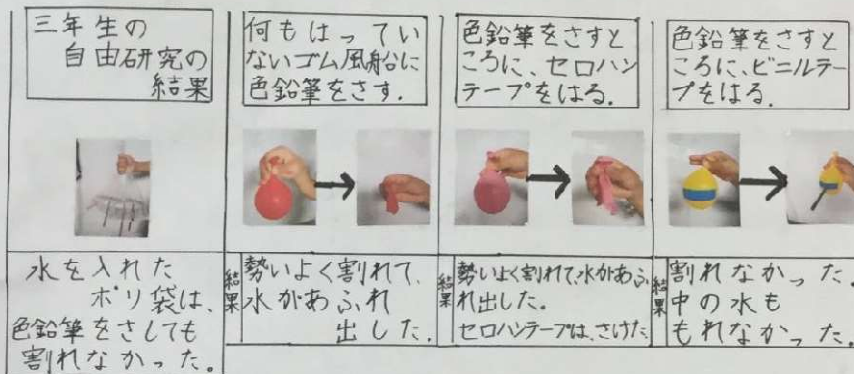 三年生の
自由研究の
結果
水を入れた
ポリ袋は、
色鉛筆をさしても
割れなかった。
何もはってい
ないゴム風船に
色鉛筆をさす.
結果
勢いよく割れて、
水があふれ
出した.
色鉛筆をさすと
ころに、セロハン
テープをはる.
結果
勢いよく割れて、水があふ
れ出した。
セロハンテープは、さけた
色鉛筆をさすと
ころに、ビニルテー
プをはる.
結果
割れなかった。
中の水も
もれなかった。